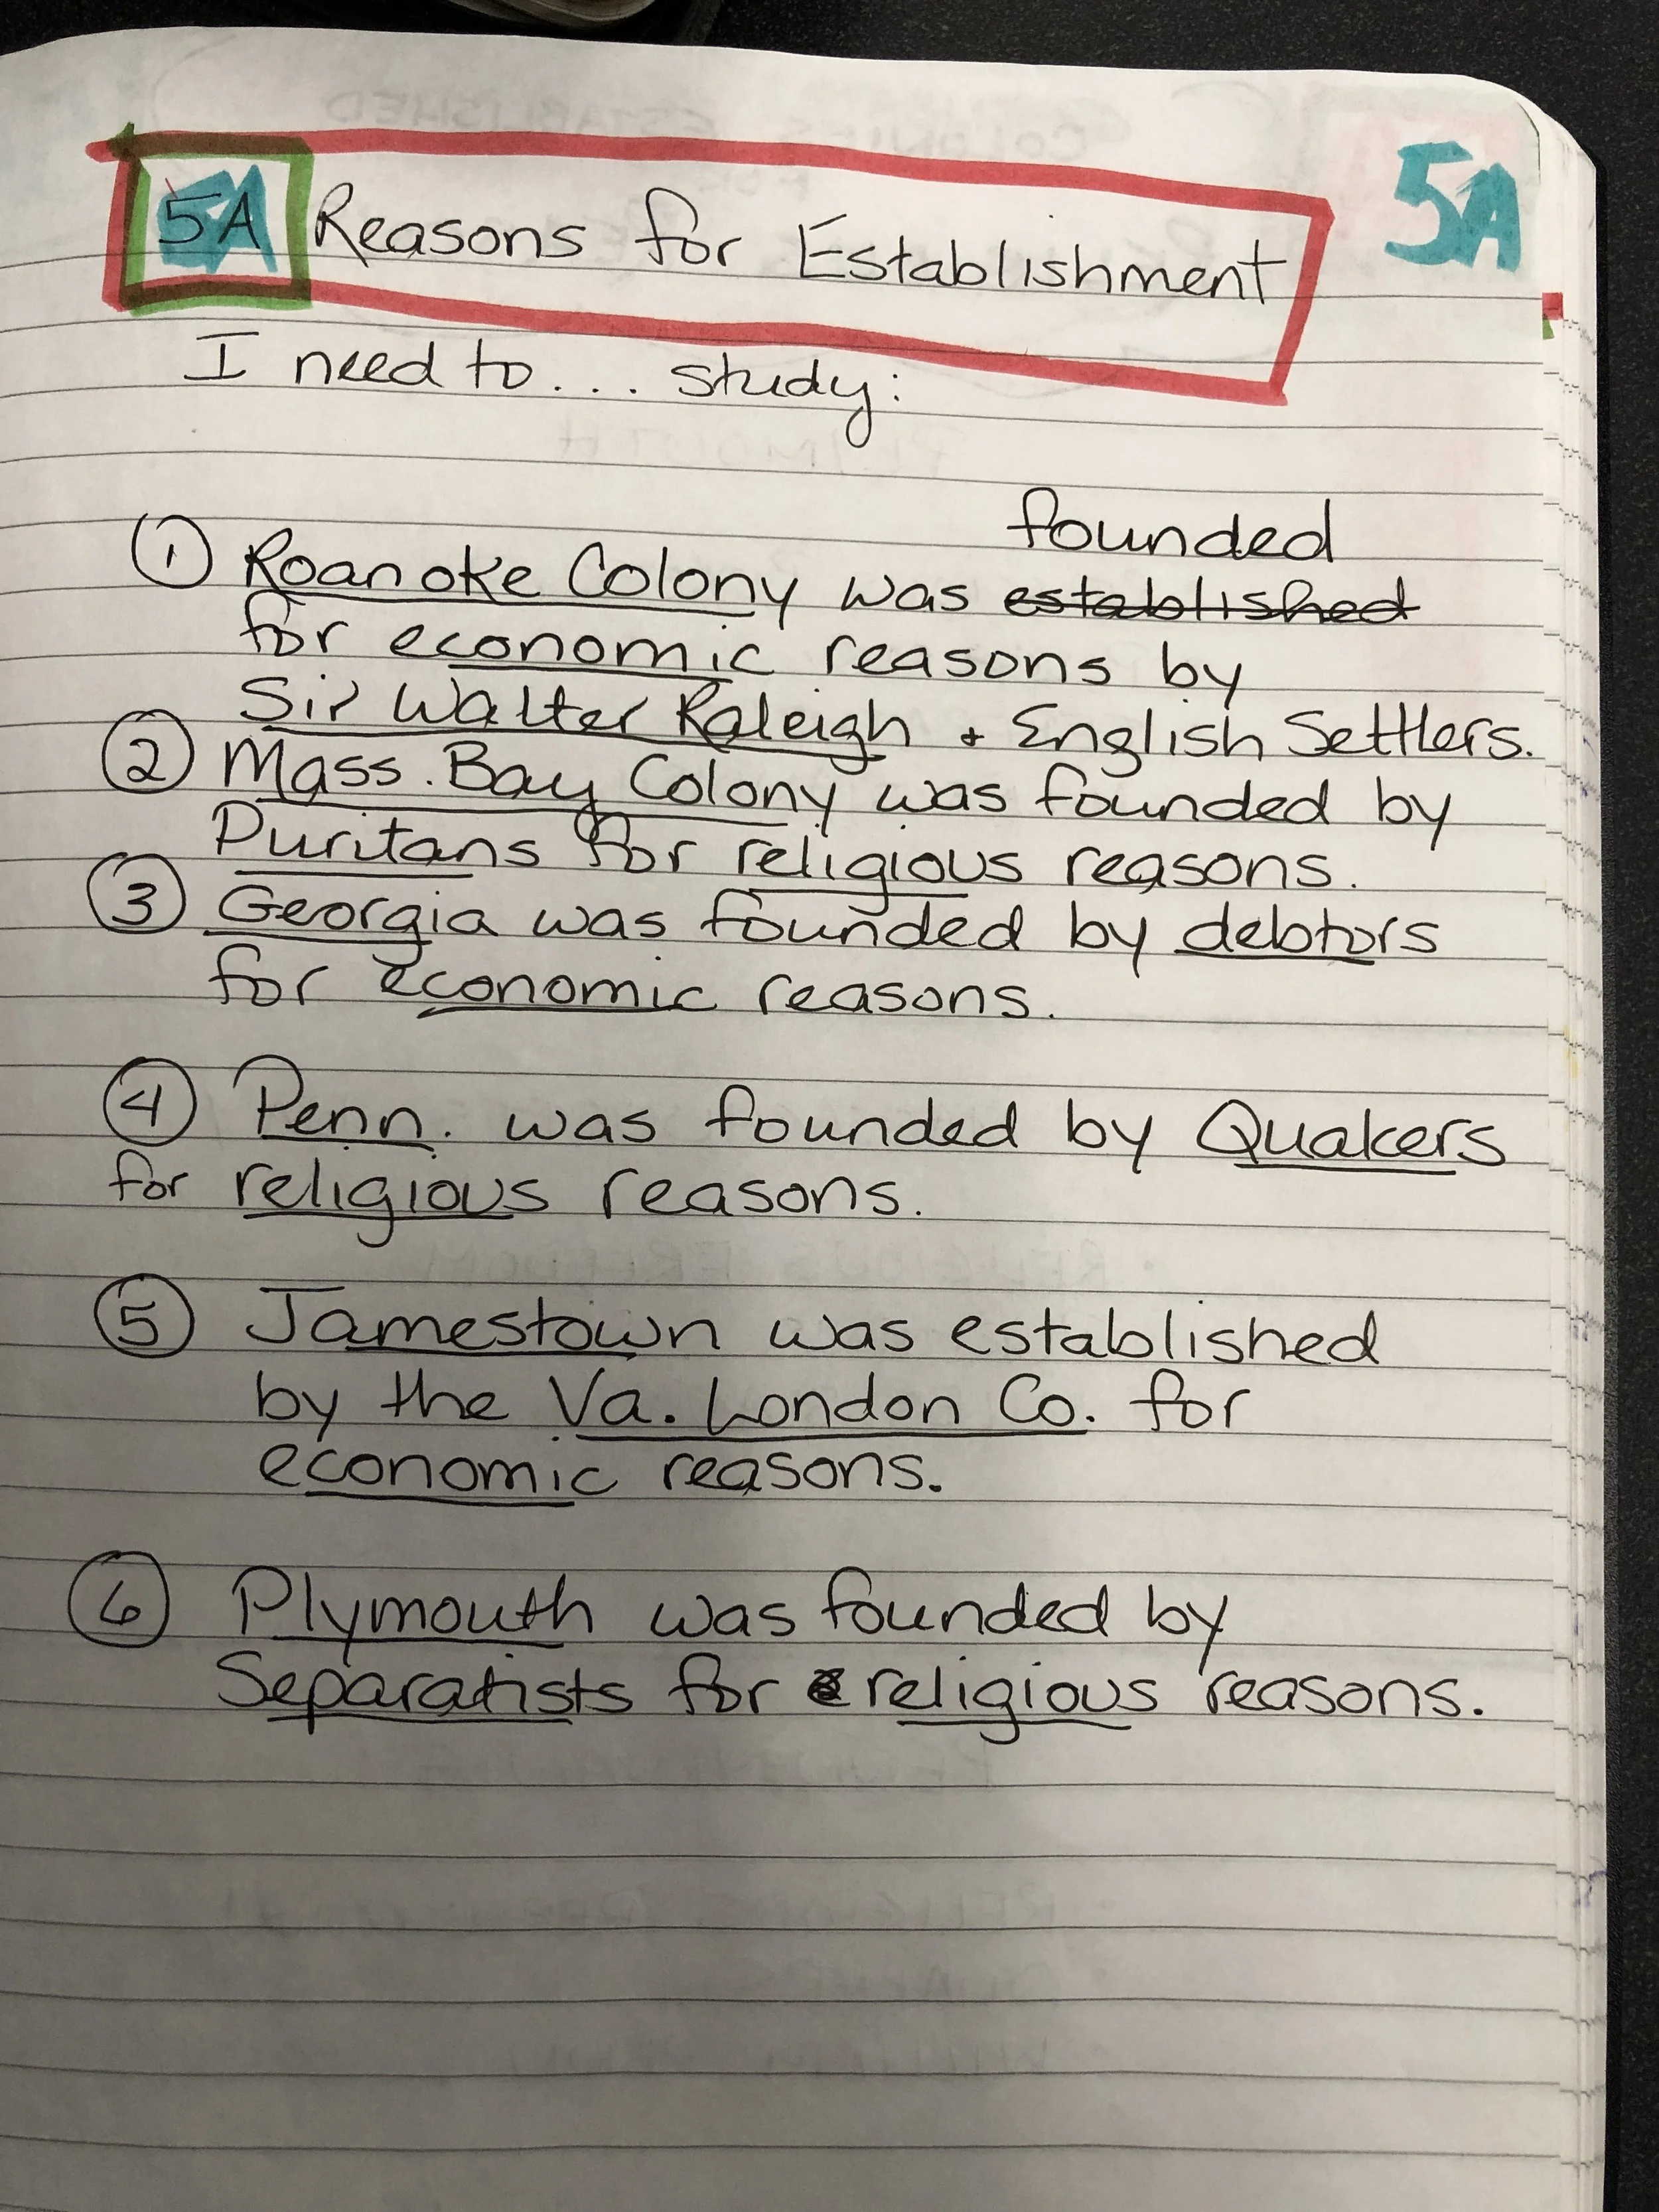 5A Reasons for Establishment
5A
I need to... study:
founded
① Roanoke Colony was established
for economic reasons by
Sir Walter Raleigh + English Settlers.
② Mass. Bay Colony was founded by
Puritans for religious reasons.
③ Georgia was founded by debtors
for economic reasons.
④ Penn. was founded by Quakers
for religious reasons.
⑤ Jamestown was established
by the Va. London Co. for
economic reasons.
⑥ Plymouth was founded by
Separatists for religious reasons.